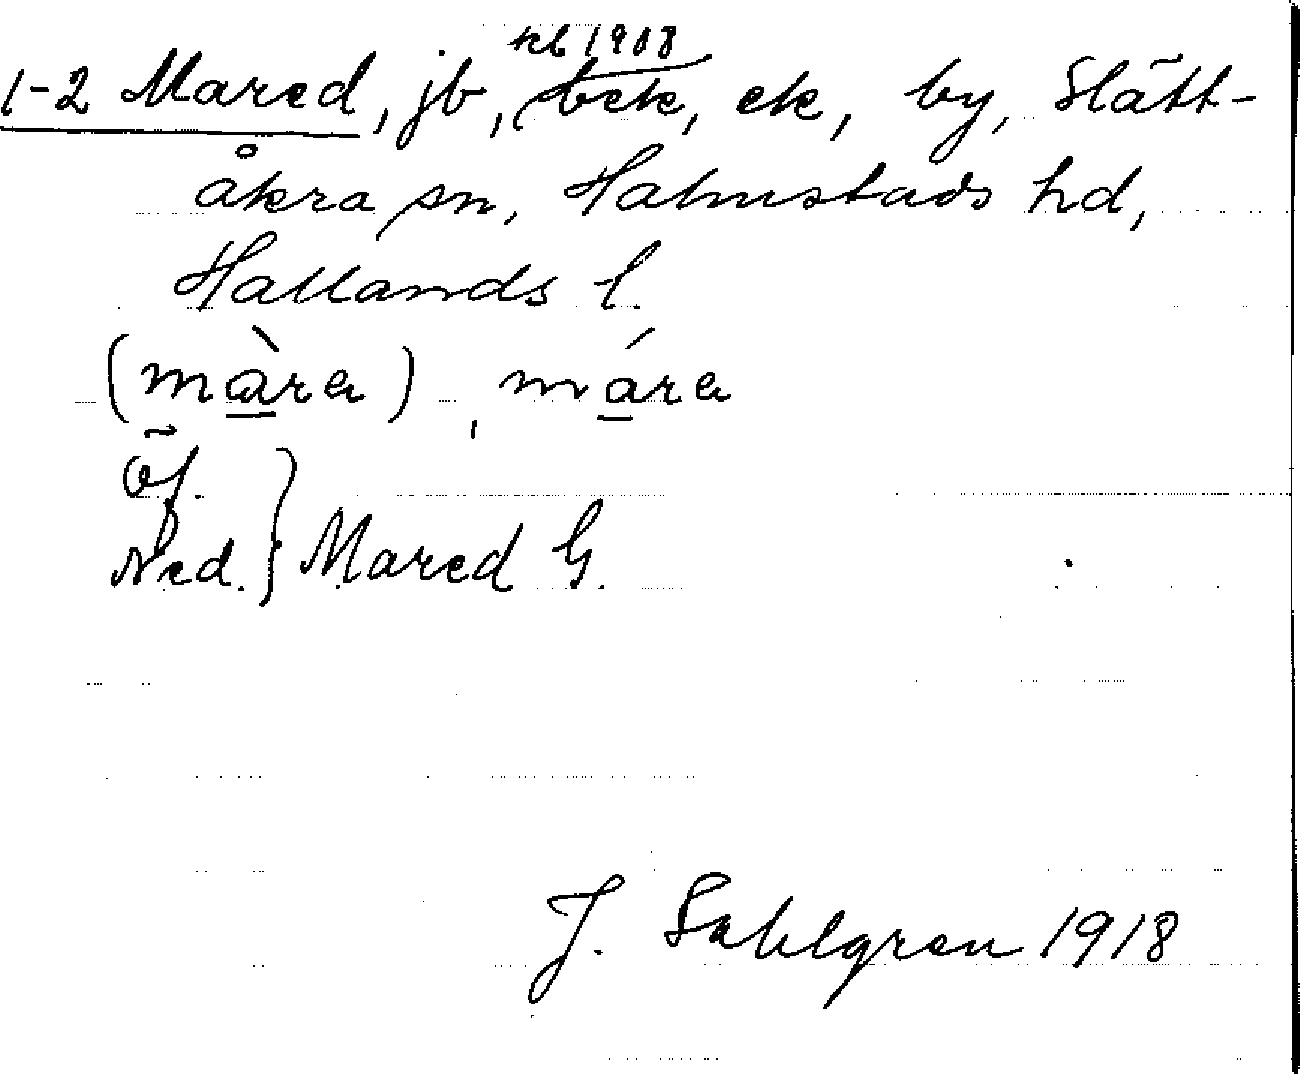 kb 1908
1-2 Mared, jb, bek, ek, by, Slätt-
åkra sn, Halmstads hd,
Hallands l.
(màra), mára
Öf.
Ned. } Mared G.
J. Sahlgren 1918